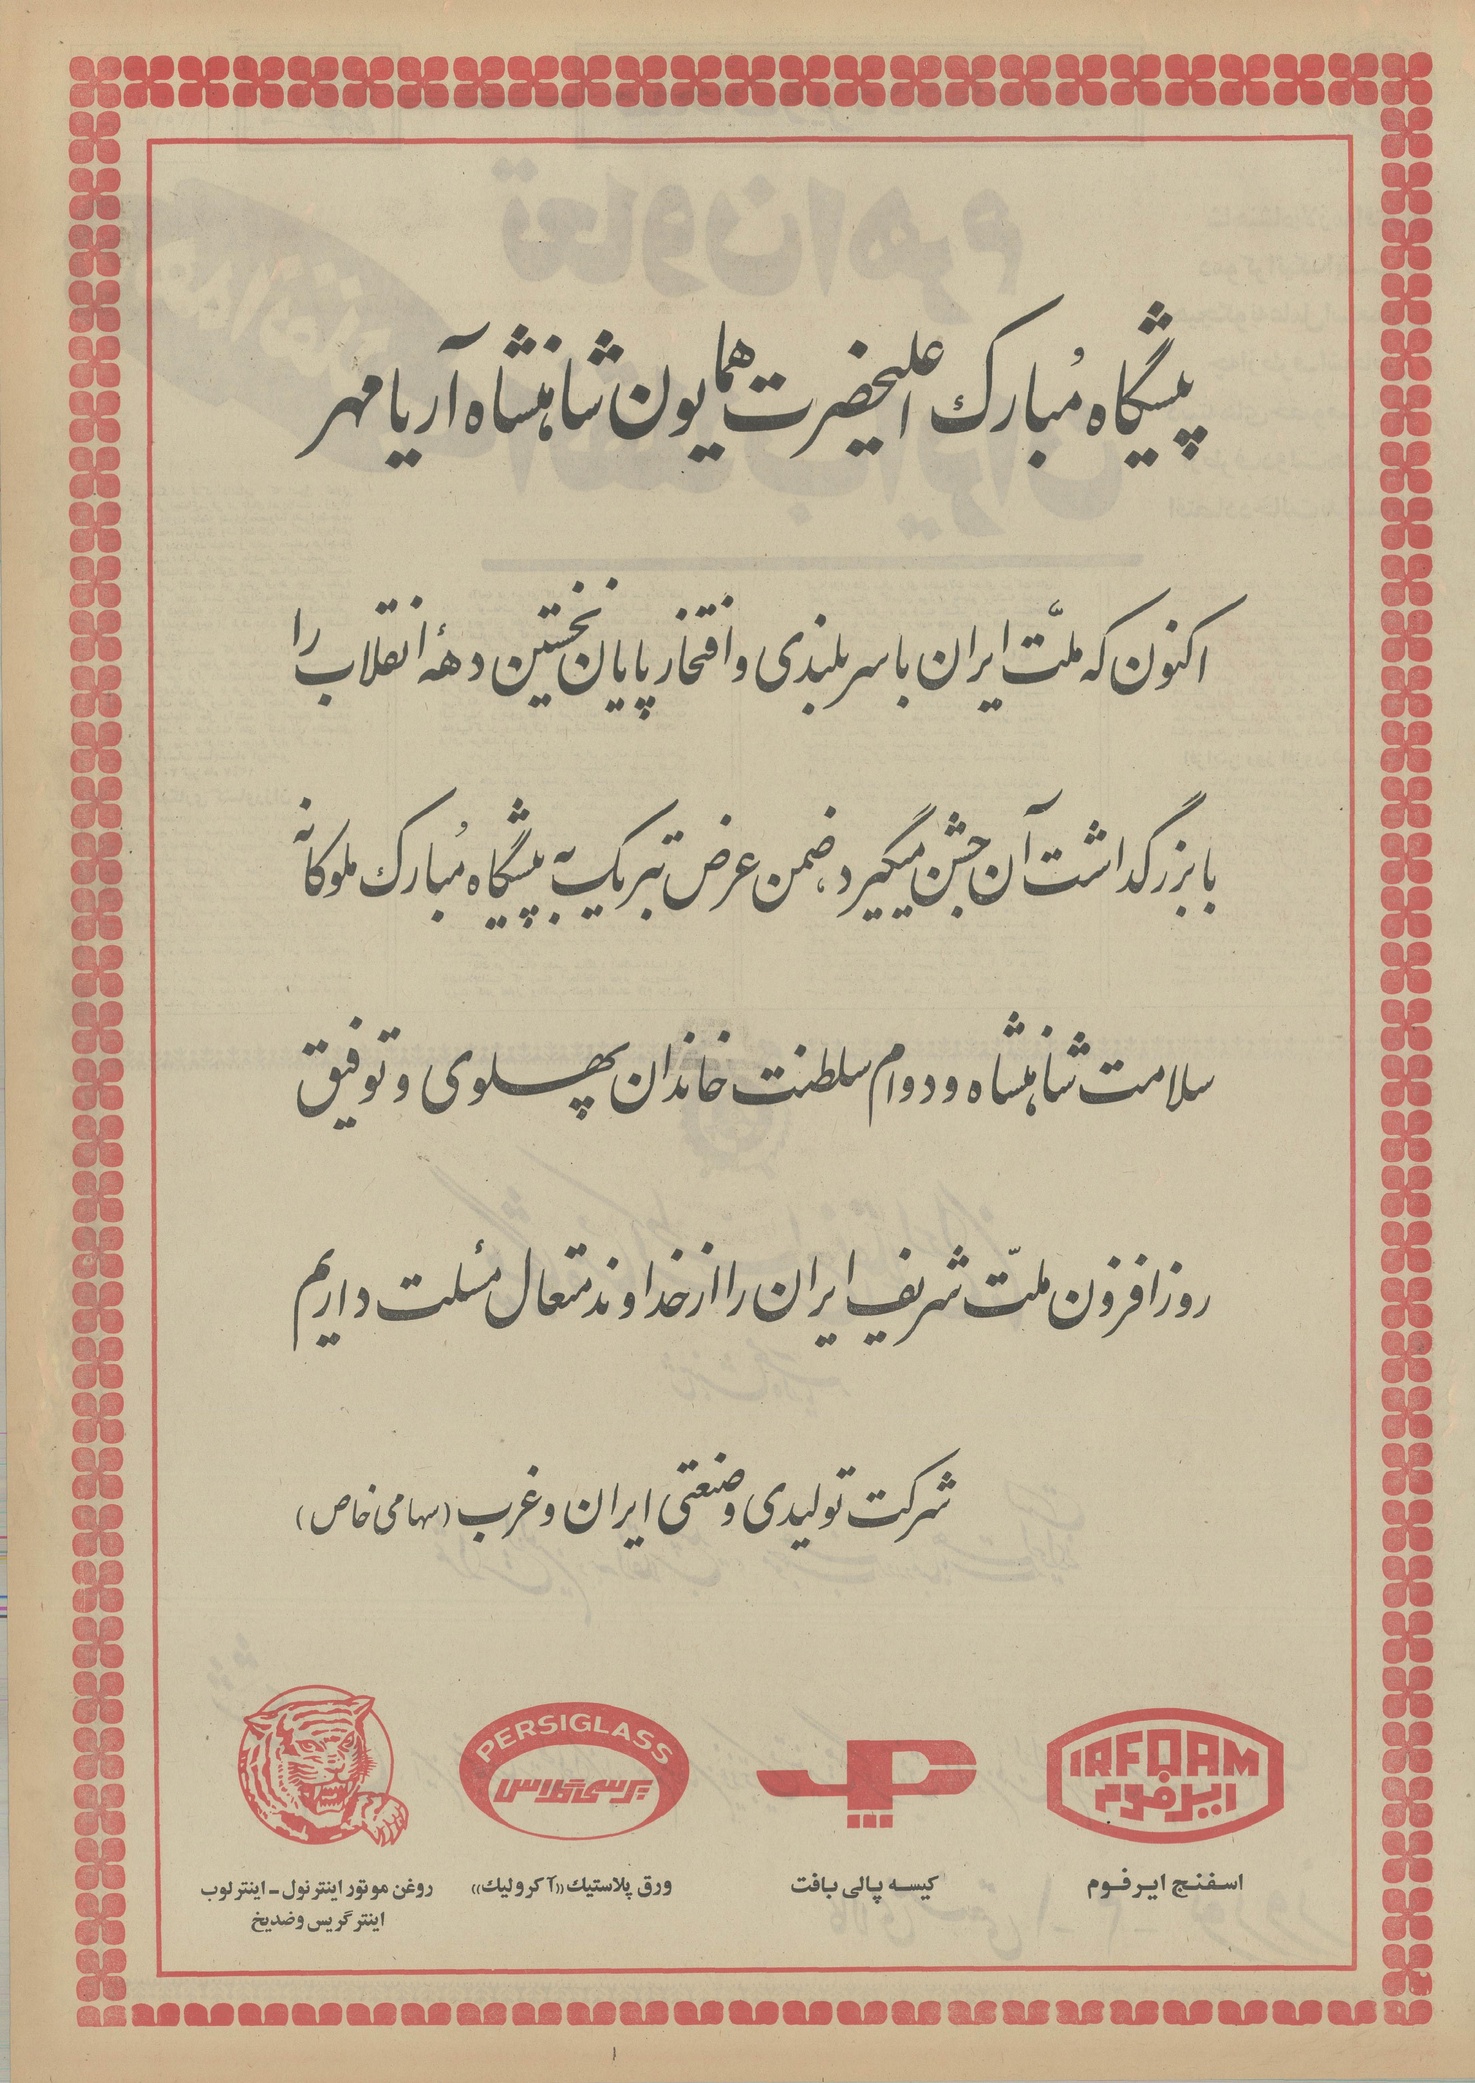 پیشگاه مُبارک اعلیحضرت همایون شاهنشاه آریامهر
اکنون که ملّت ایران با سربلندی و افتخار پایان نخستین دههٔ انقلاب را
با بزرگداشت آن جشن میگیرد، ضمن عرض تبریک به پیشگاه مُبارک ملوکانه
سلامت شاهنشاه و دوام سلطنت خاندان پهلوی و توفیق
روزافزون ملّت شریف ایران را از خداوند متعال مسئلت داریم
شرکت تولیدی و صنعتی ایران و غرب (سهامی خاص)
IRFOAM
ایرفوم
PERSIGLASS
پرسی گلاس
اسفنج ایرفوم
کیسه پالی بافت
ورق پلاستیك «آکرولیك»
روغن موتور اینترنول - اینترلوب
اینترگریس وضدیخ